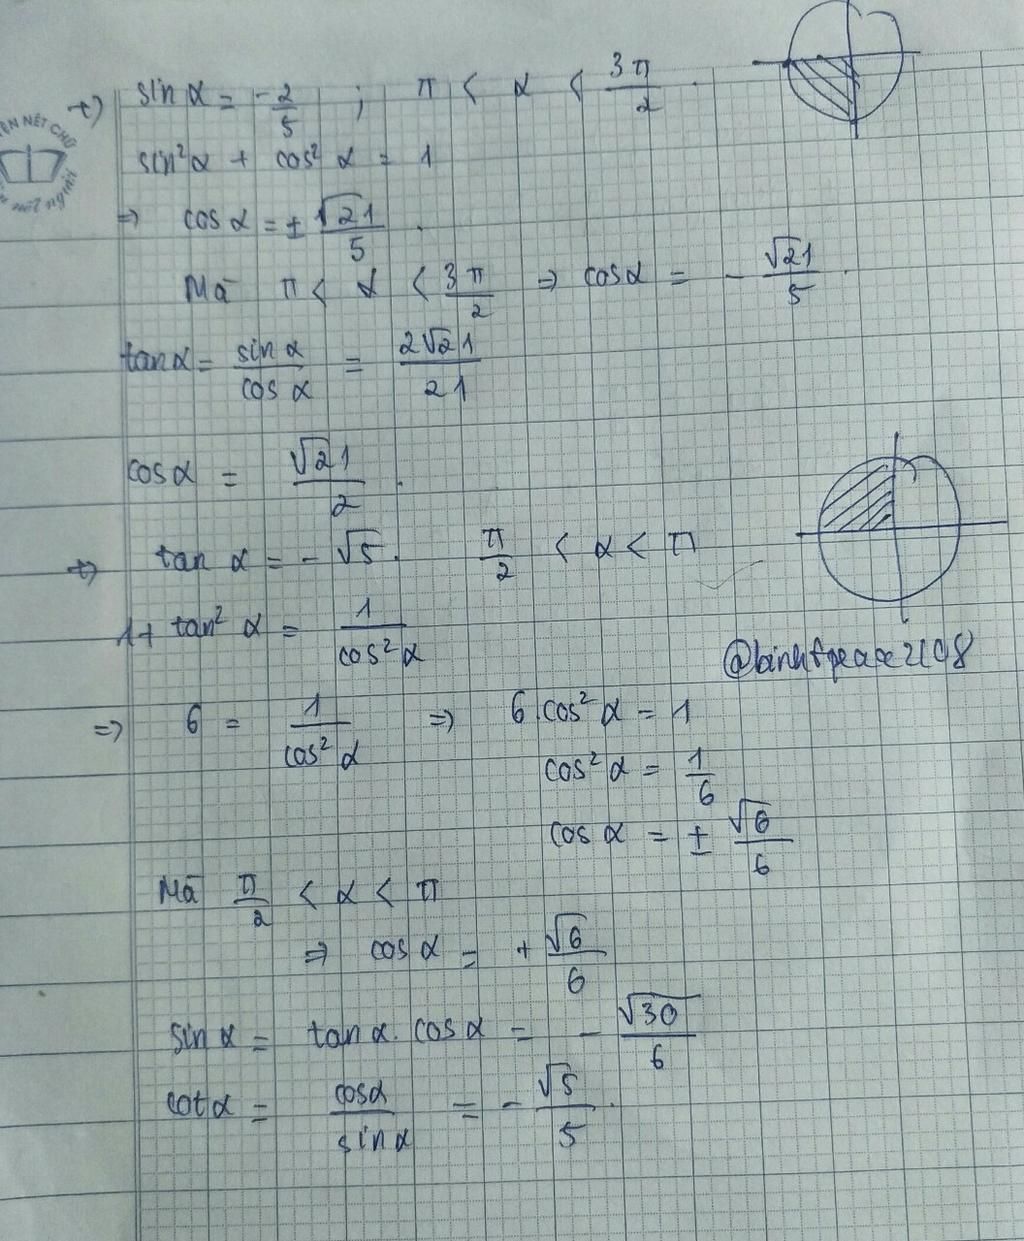 +) sin α = -2/5 ; π < α < 3π/2
sin²α + cos²α = 1
⇒ cos α = ± √21/5.
Mà π < α < 3π/2 ⇒ cos α = - √21/5.
tan α = sin α/cos α = 2√21/21
cos α = √21/2.
+) tan α = - √5. π/2 < α < π
1 + tan²α = 1/cos²α
@binhfpeace2108
⇒ 6 = 1/cos²α ⇒ 6 cos²α = 1
cos²α = 1/6
cos α = ± √6/6
Mà π/2 < α < π
⇒ cos α = + √6/6
sin α = tan α . cos α = - √30/6
cot α = cos α/sin α = - √5/5.